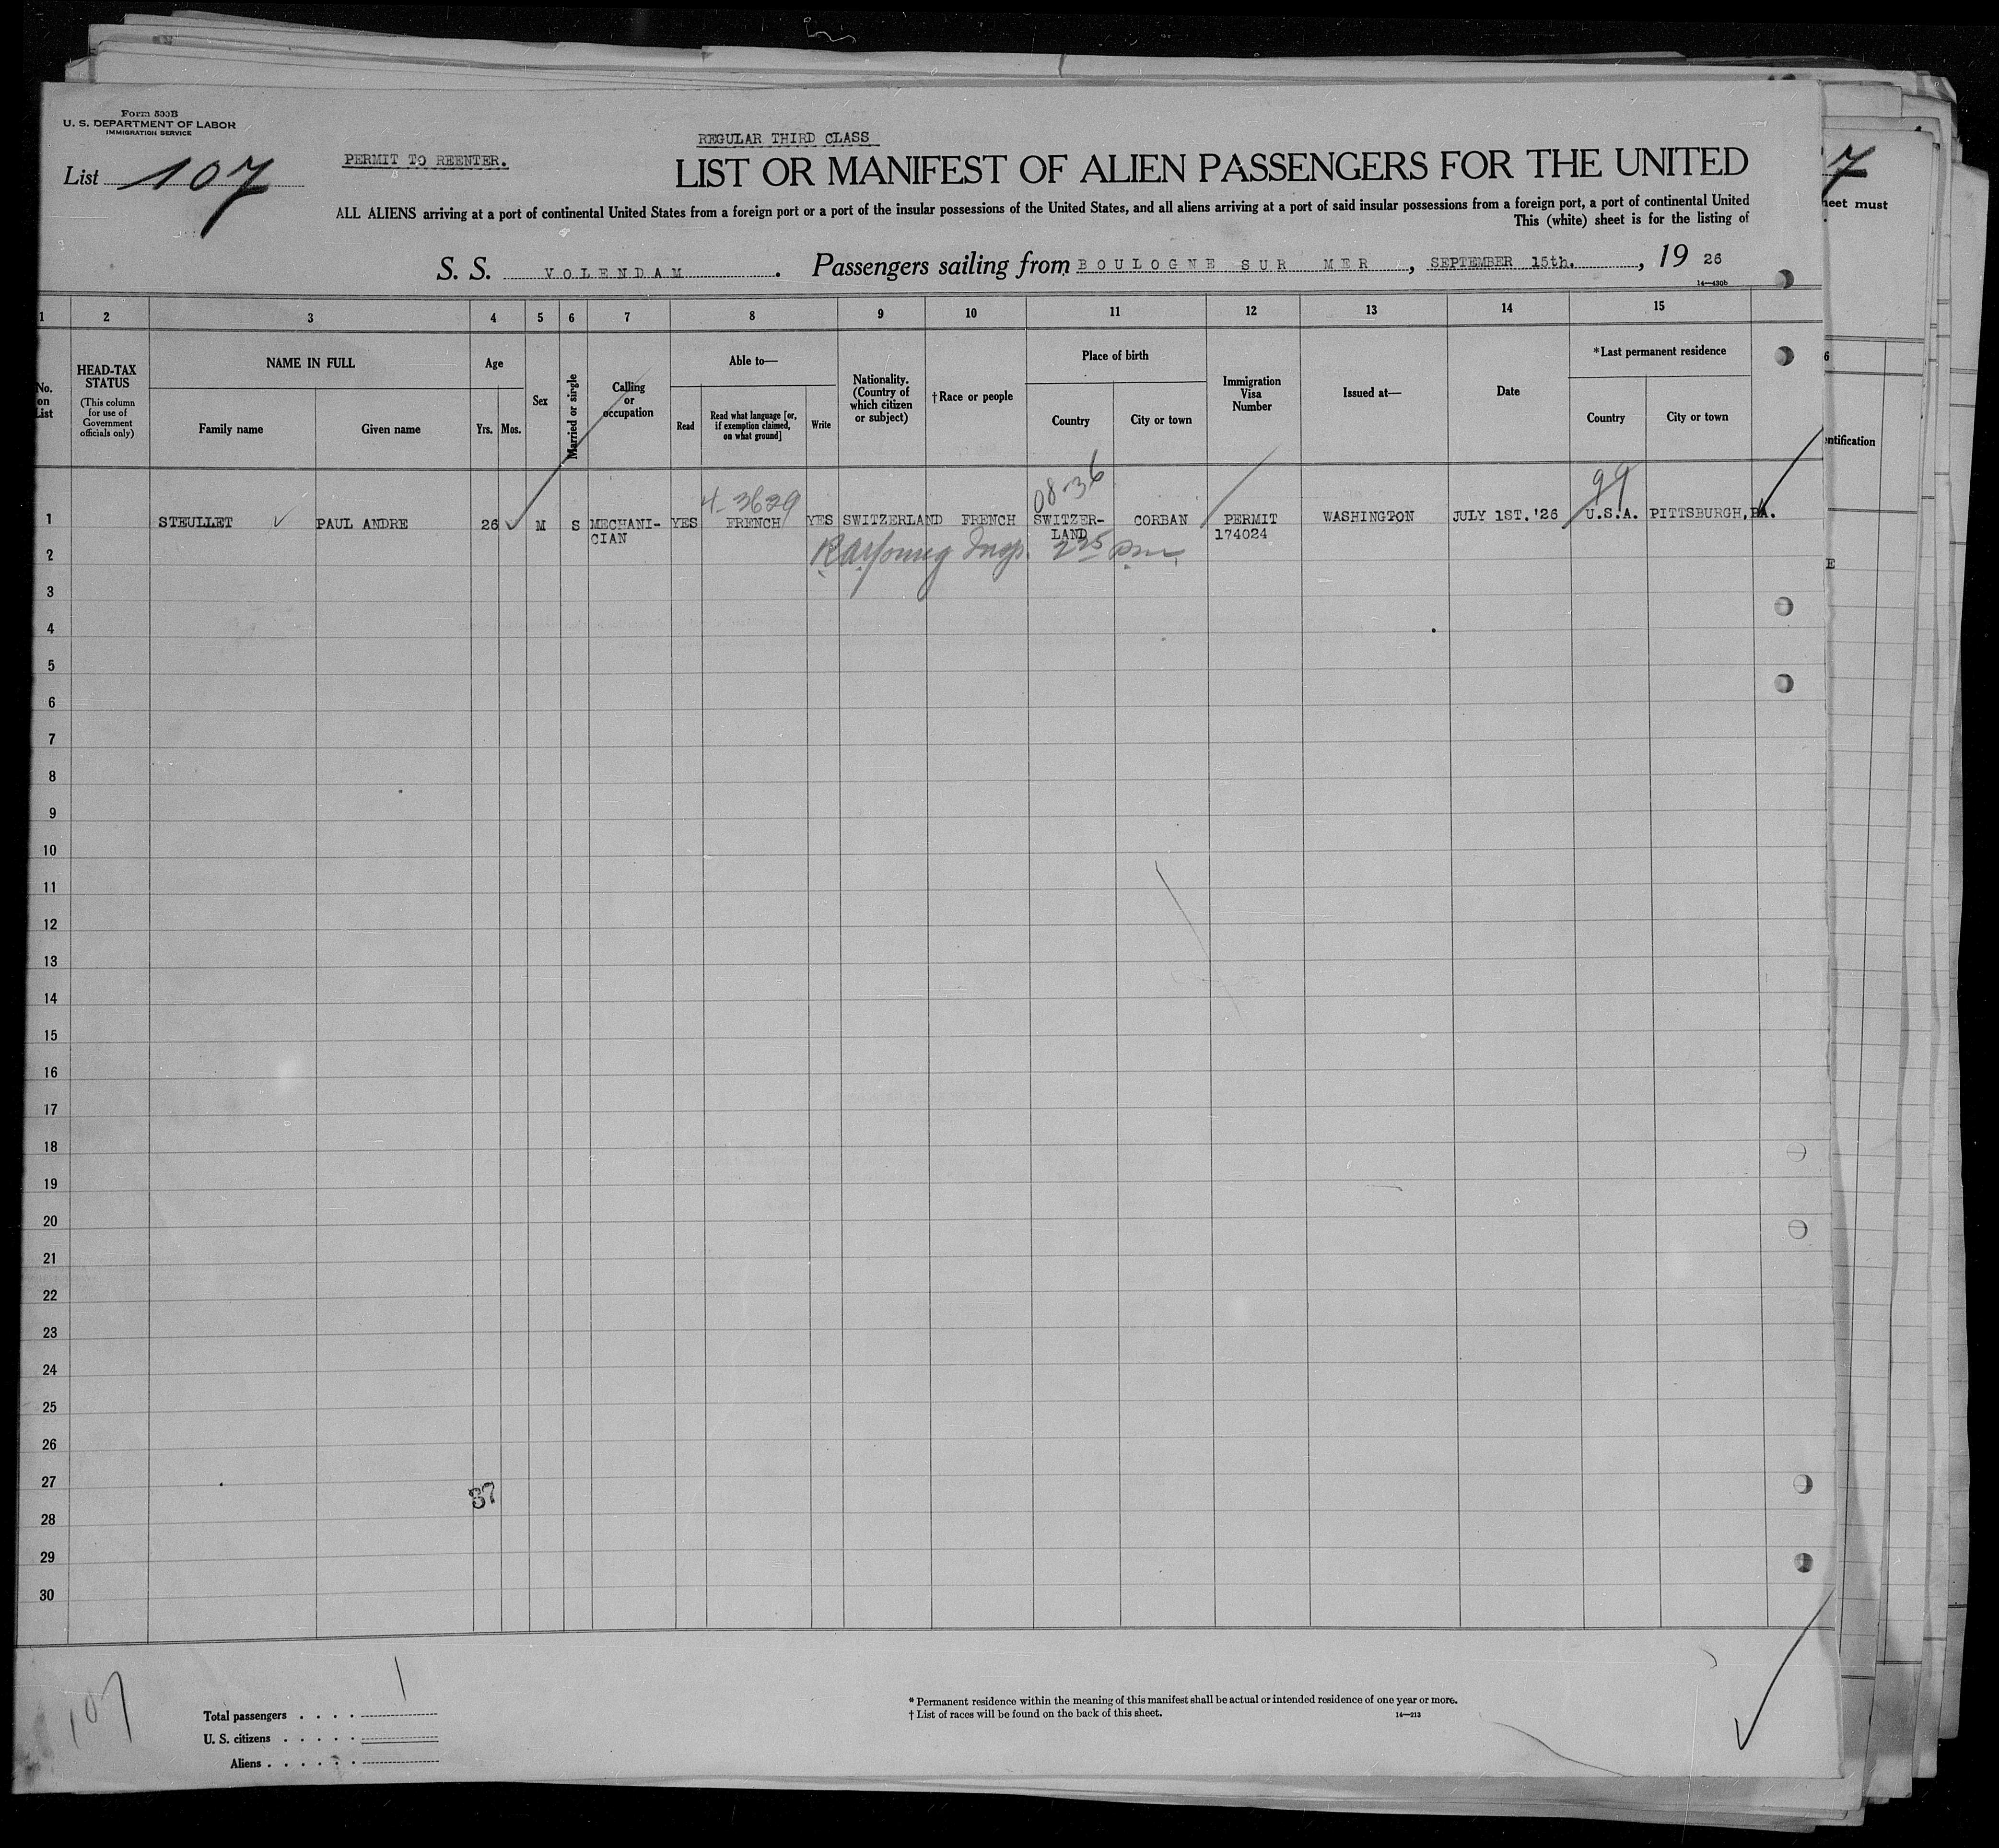 Form 500B
U. S. DEPARTMENT OF LABOR
IMMIGRATION SERVICE
List 107
PERMIT TO REENTER.
REGULAR THIRD CLASS
LIST OR MANIFEST OF ALIEN PASSENGERS FOR THE UNITED
ALL ALIENS arriving at a port of continental United States from a foreign port or a port of the insular possessions of the United States, and all aliens arriving at a port of said insular possessions from a foreign port, a port of continental United
This (white) sheet is for the listing of
S. S. VOLENDAM. Passengers sailing from BOULOGNE SUR MER, SEPTEMBER 15th., 1926
14—430b
1 2 3 4 5 6 7 8 9 10 11 12 13 14 15
No. on List
HEAD-TAX STATUS
(This column for use of Government officials only)
NAME IN FULL
Family name
Given name
Age
Yrs. Mos.
Sex
Married or single
Calling or occupation
Able to—
Read
Read what language [or, if exemption claimed, on what ground]
Write
Nationality. (Country of which citizen or subject)
†Race or people
Place of birth
Country
City or town
Immigration Visa Number
Issued at—
Date
*Last permanent residence
Country
City or town
4-3629
08-36
99
1 STEULLET PAUL ANDRE 26 M S MECHANI- YES FRENCH YES SWITZERLAND FRENCH SWITZER- CORBAN PERMIT WASHINGTON JULY 1ST. '26 U.S.A. PITTSBURGH, PA.
CIAN LAND 174024
2 Insp. 2 25 pm
3
4
5
6
7
8
9
10
11
12
13
14
15
16
17
18
19
20
21
22
23
24
25
26
27
37
28
29
30
107
Total passengers 1
U. S. citizens
Aliens
* Permanent residence within the meaning of this manifest shall be actual or intended residence of one year or more.
† List of races will be found on the back of this sheet.
14—213
7
heet must
6
ntification
E